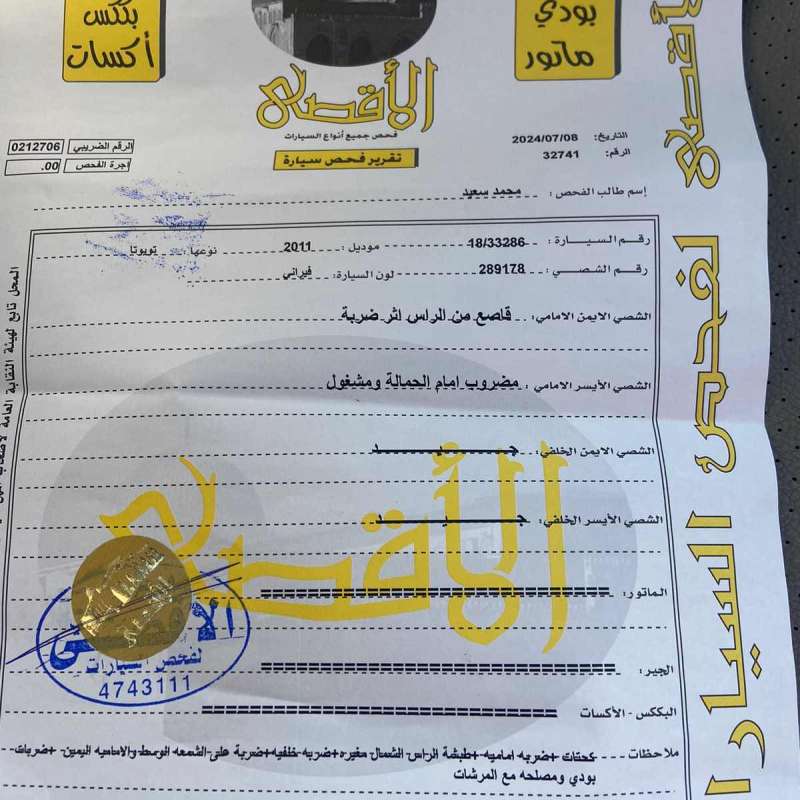 بككس
أكسات
بودي
ماتور
الأقصى
فحص جميع أنواع السيارات
تقرير فحص سيارة
التاريخ: 2024/07/08
الرقم: 32741
الرقم الضريبي 0212706
اجرة الفحص .00
إسم طالب الفحص : محمد سعيد
رقم السيارة : 18/33286 موديل : 2011 نوعها : تويوتا
رقم الشصي : 289178 لون السيارة: فيراني
الشصي الأيمن الامامي: قاصع من الراس اثر ضربة
الشصي الأيسر الامامي : مضروب امام الحمالة ومشغول
الشصي الايمن الخلفي: جيد
الشصي الأيسر الخلفي: جيد
الماتور:
الجير:
البككس - الأكسات
ملاحظات كحتات +ضربه اماميه +طبشة الراس الشمال مغيره +ضربه خلفيه +ضربة على الشمعه الوسط والاماميه اليمين +ضربات
بودي ومصلحه مع المرشات
لفحص السيارات
4743111
الأقصى لفحص السيارا
المحل تابع لهيئة النقابة العامة
الأقصى